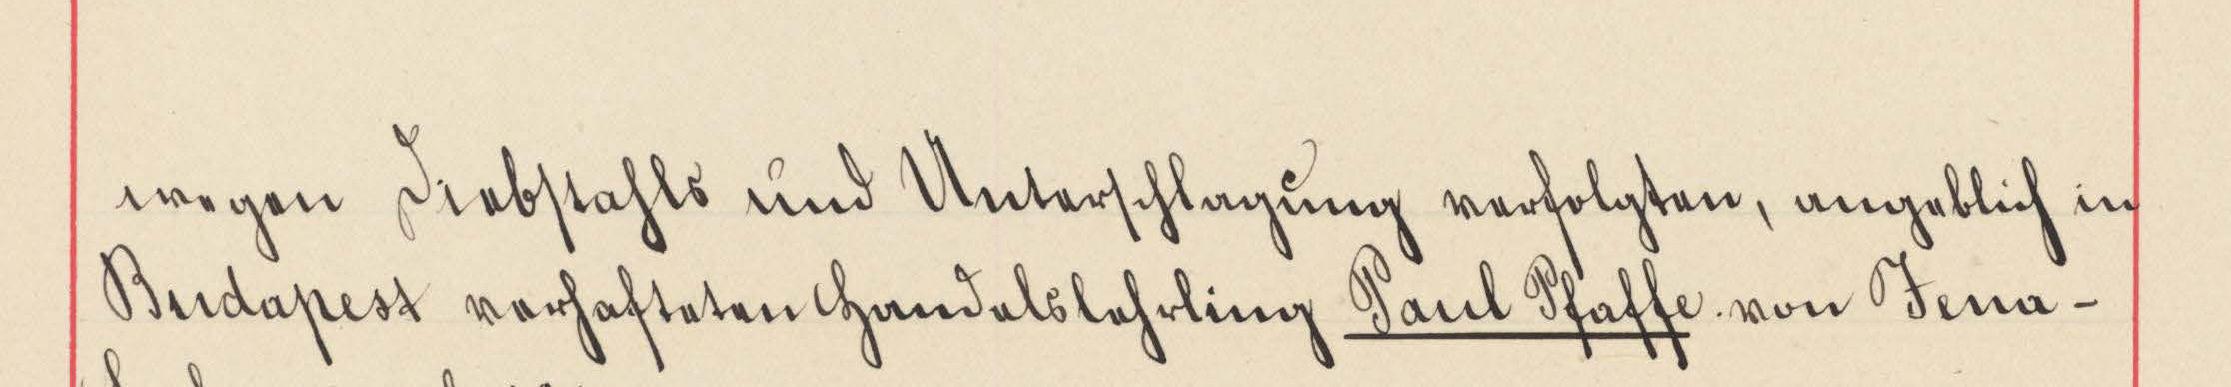 wegen Diebstahls und Unterschlagung verfolgten, angeblich in
Budapest verhafteten Handelslehrling Paul Pfaffe von Jena -